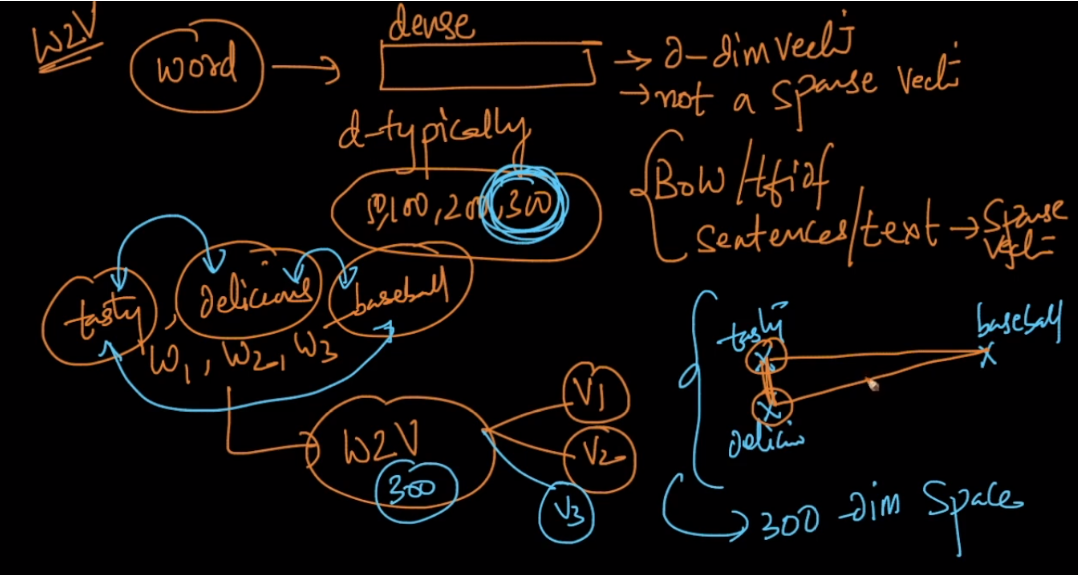 W2V
word → dense → d-dim vect
→ not a sparse vect
d-typically
50,100,200,300
{BOW/tfidf
sentences/text → sparse vect
tasty, delicious, baseball
w1, w2, w3
W2V
300
V1
V2
V3
tasty
baseball
delicio
300-dim space